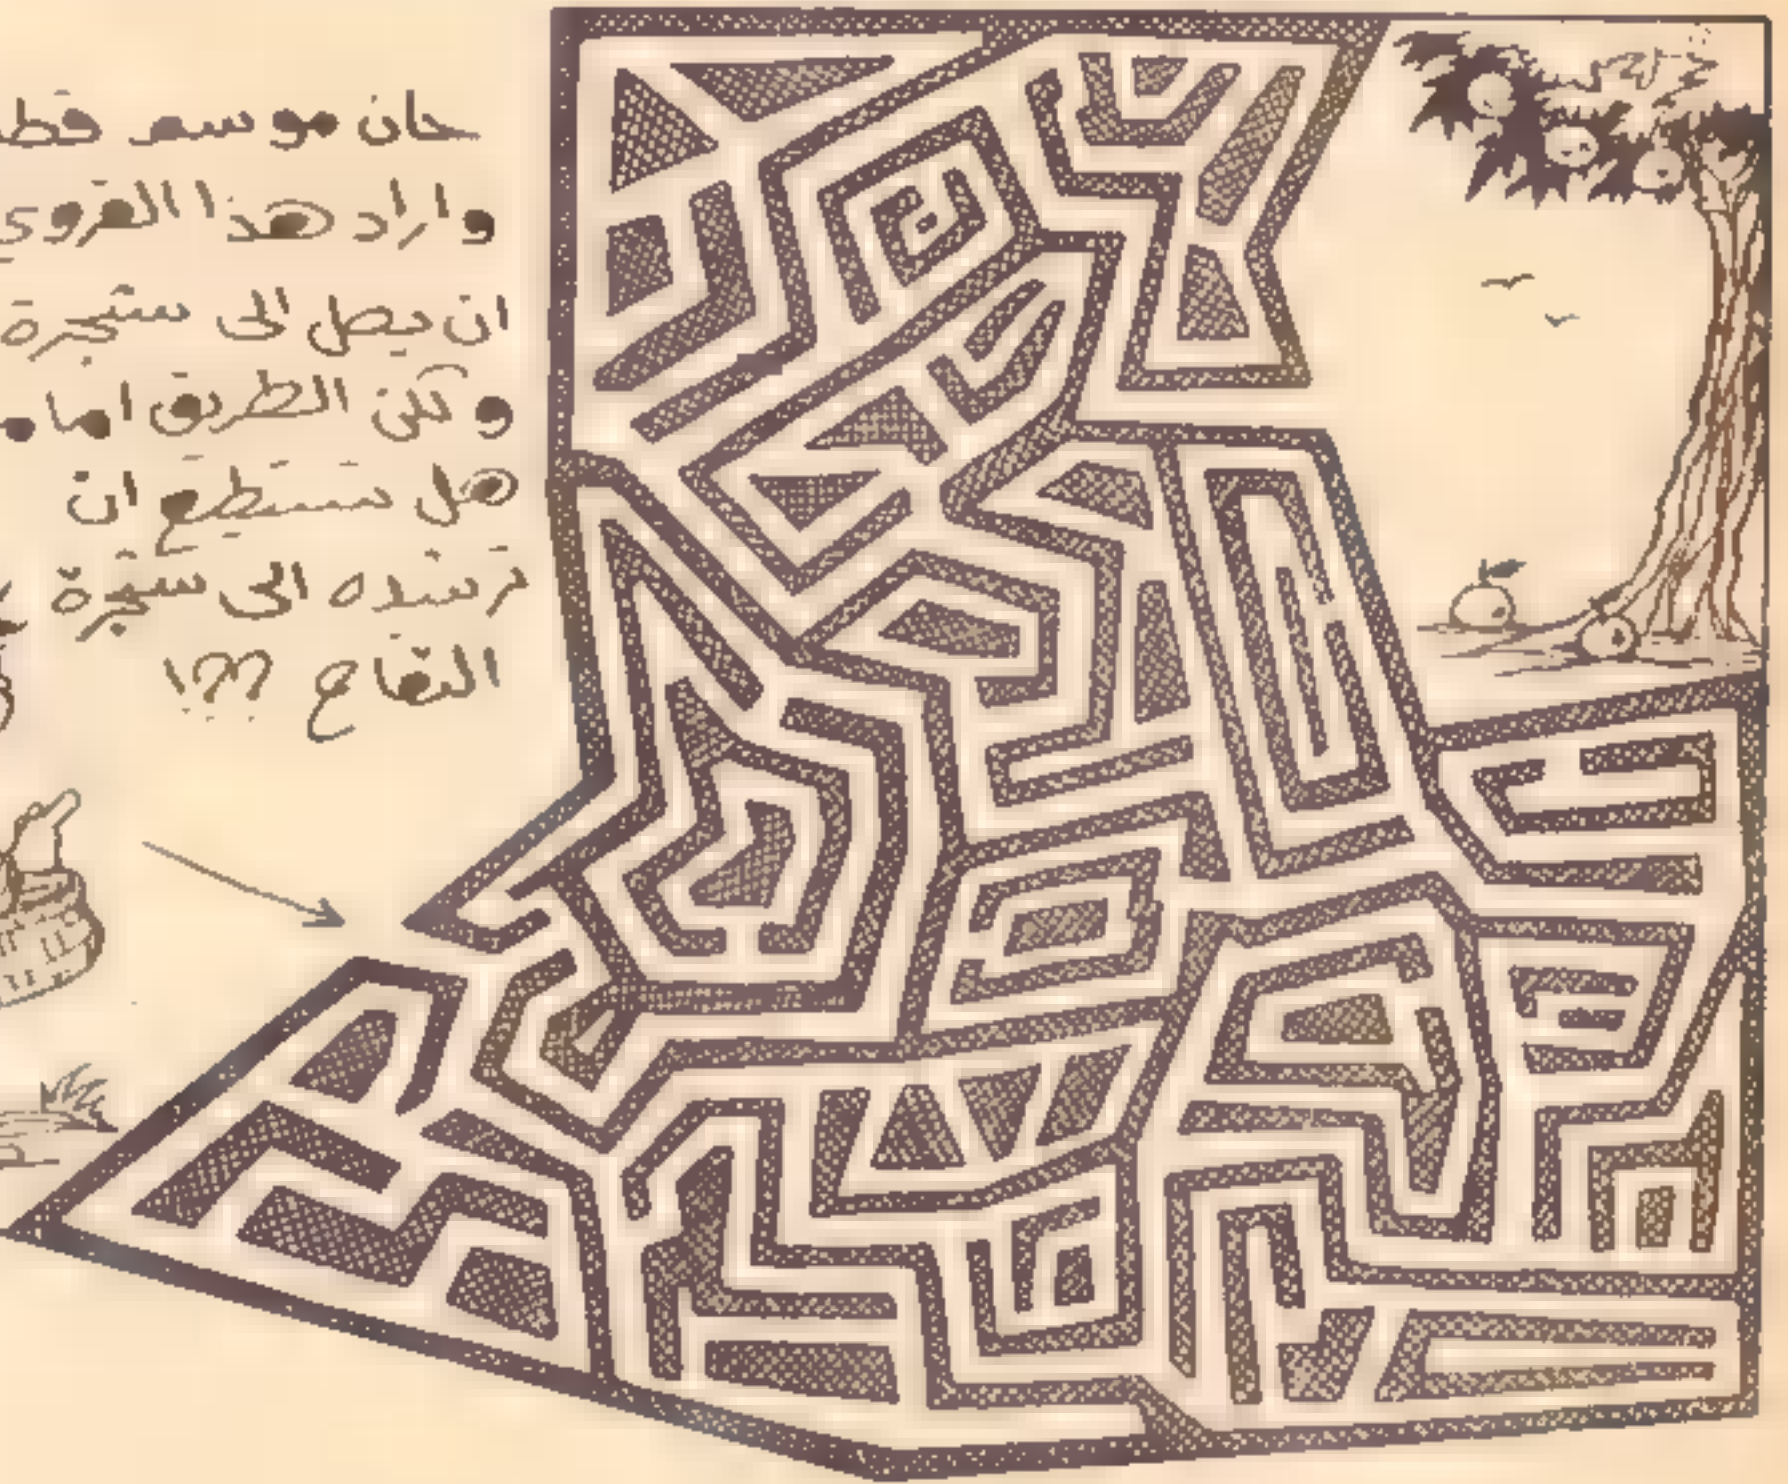 حان موسم قطـ
واراد هذا القروي
ان يصل الى شجرة
ولكن الطريق امامـ
هل تستطيع ان
ترشده الى شجرة
التفاح ؟؟!